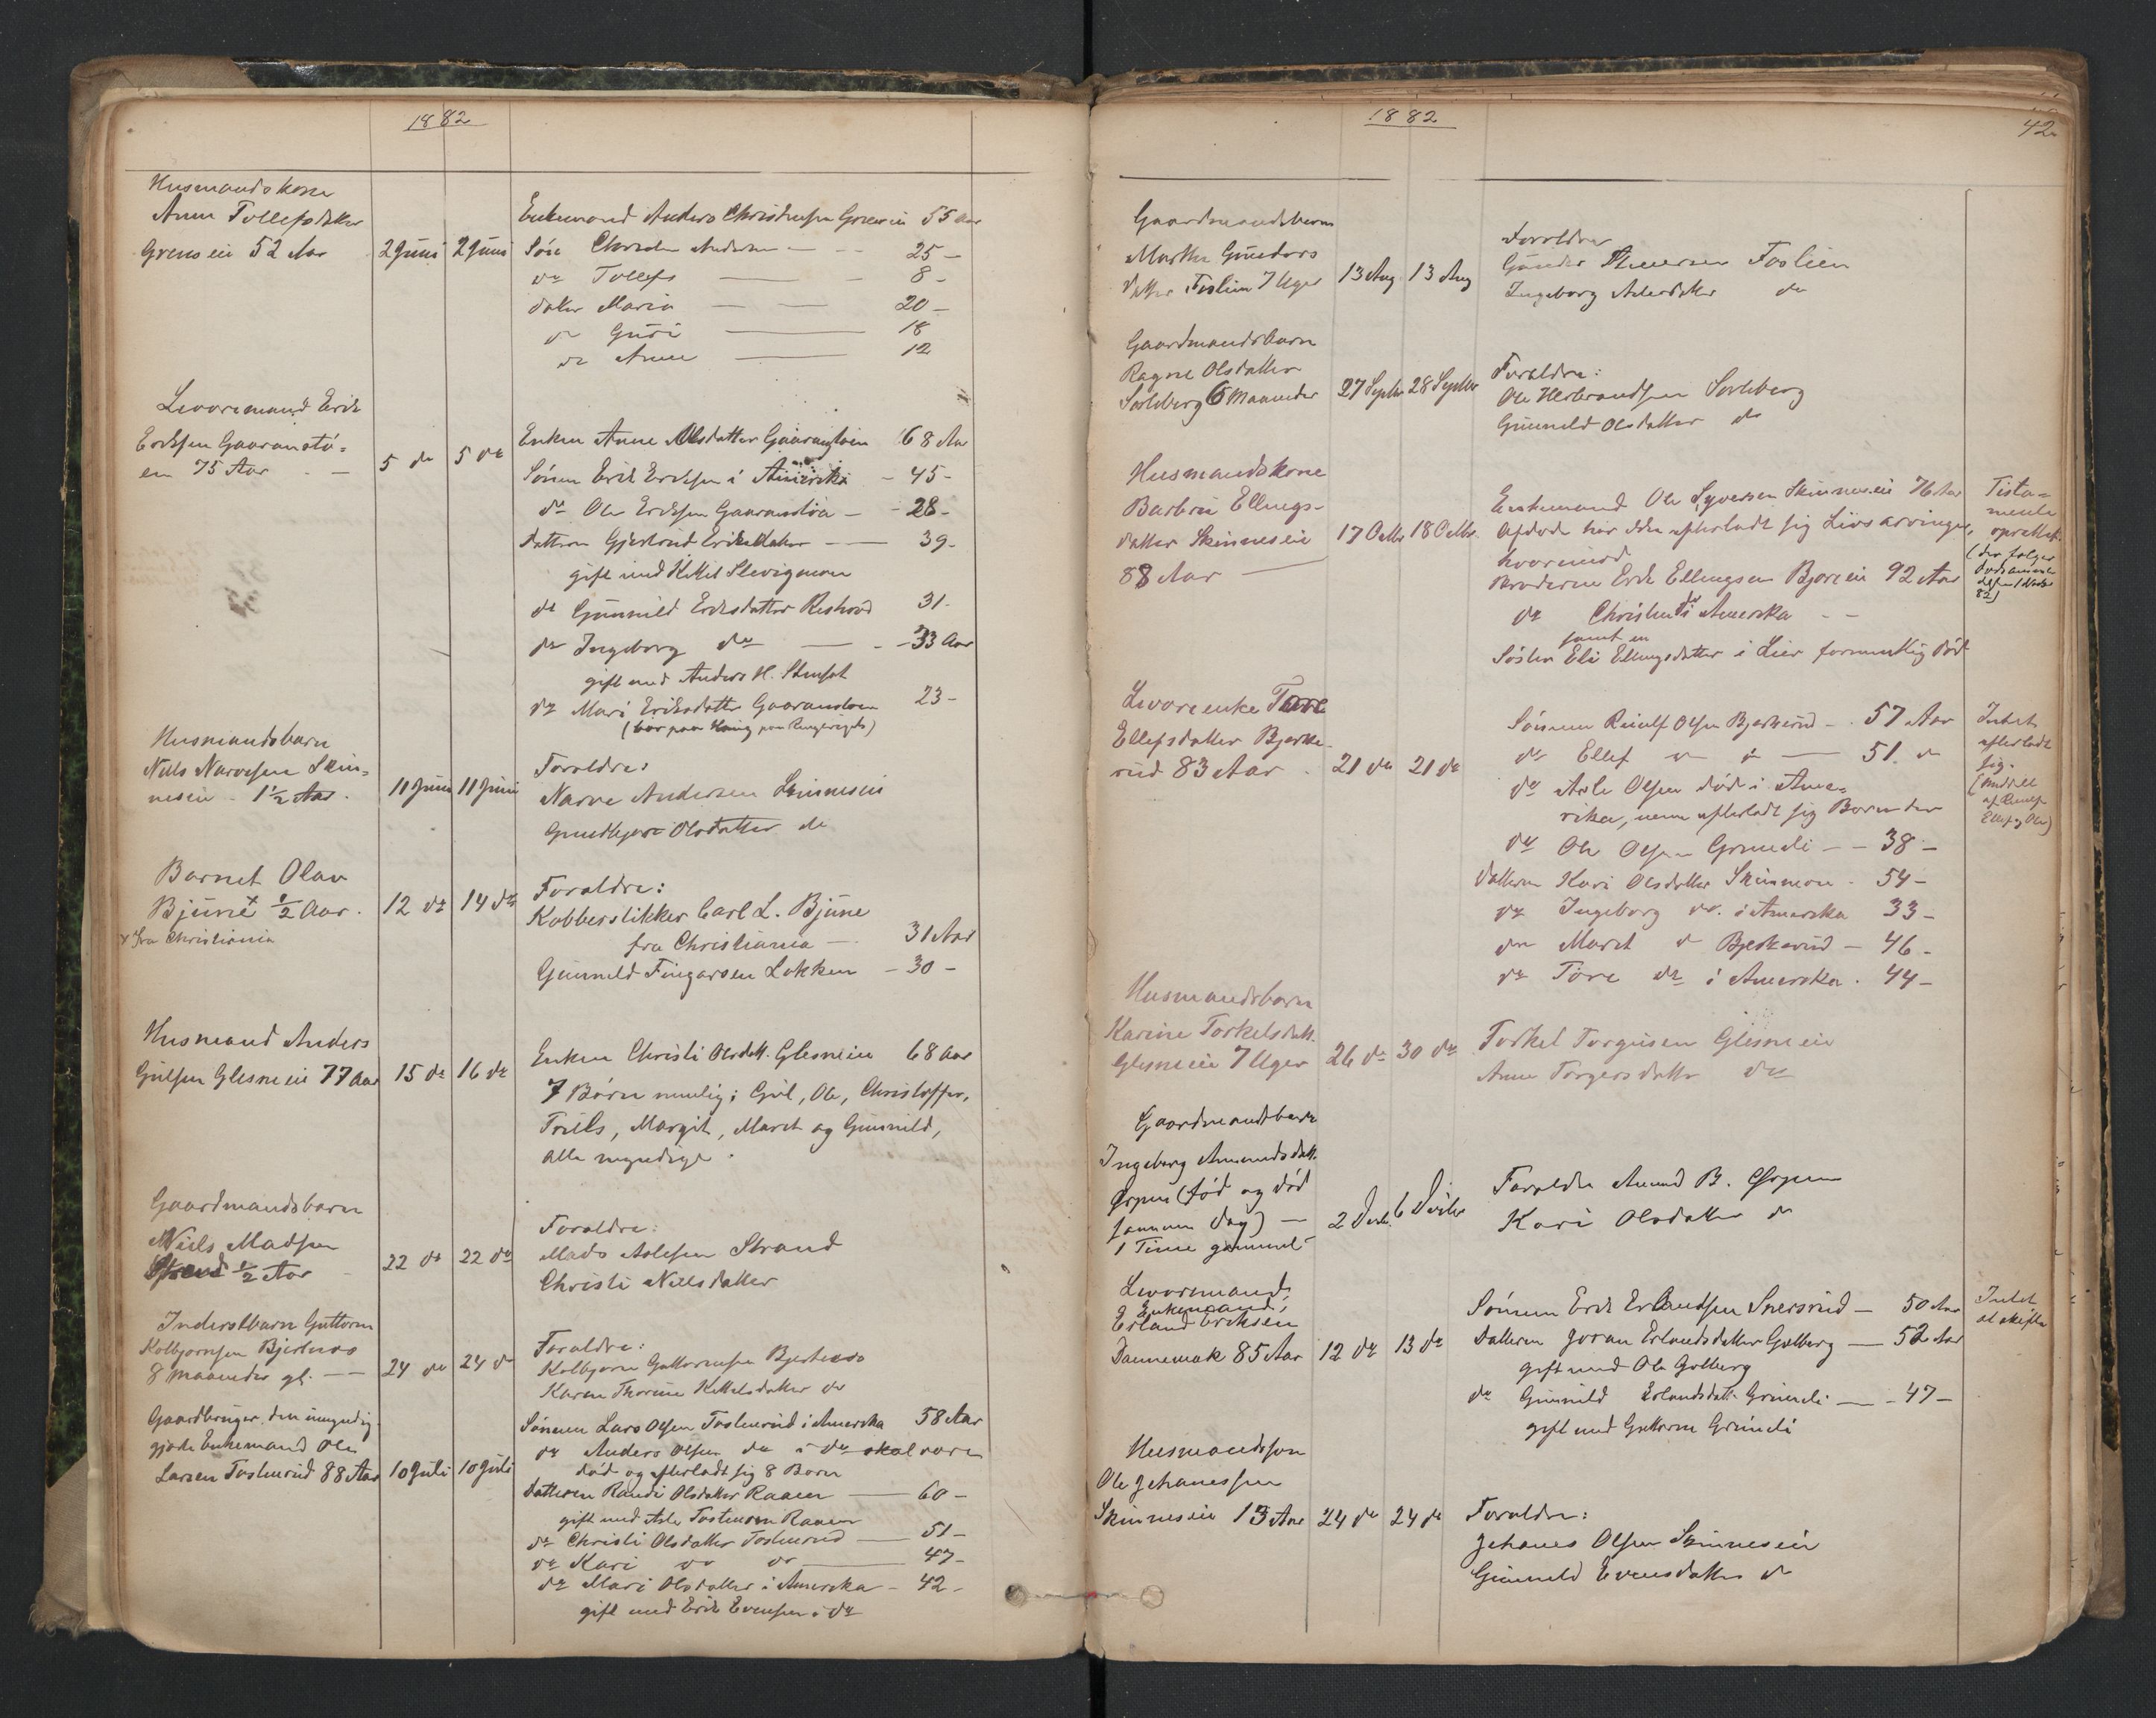 1882
Husmandskone
Anne Tollefsdatter
Grenseie 52 Aar
2 Juni 2 Juni
Enkemand Anders Christensen 55 Aar
Søn Andersen 25 -
do Tollef 8 -
datter Maria 20 -
do Guri 18
do Anne 12
Livøremand Erik
Eriksen Gaaranstø=
en 75 Aar
5 do 5 do
Enken Anne Olsdatter 68 Aar
Sønnen Erik Eriksen i Amerika - 45 -
do Ole Eriksen - 28 -
datteren Gjertrud Eriksdatter - 39 -
gift med Kittel
do Gunnild Eriksdatter 31 -
do Ingeborg do - 33 Aar
gift med Anders H.
do Mari Eriksdatter 23 -
(bor paa paa Ringerige)
Husmandsbarn
Nils Narvesen Skin=
neseie - 1 1/2 Aar.
11 Juni 11 Juni
Foraldre:
Narve Andersen Skinneseie
Olsdatter do
Barnet Olav
Bjune x 1/2 Aar.
x fra Christiania
12 do 14 do
Foraldre:
Kobberstikker Carl L. Bjune
fra Christiania - 31 Aar
Gunnild Fingarsen Løkken - 30 -
Husmand Anders
Gulsen Glesneeie 77 Aar
15 do 16 do
Enken Christi Olsdatt. Glesneeie 68 Aar
7 Børn nemlig: Gul, Ole, Christoffer,
Truls, Margit, Marit og Gunnild,
alle myndige.
Gaardmandsbarn
Niels Madsen
Strand 1/2 Aar
22 do 22 do
Foraldre:
Mads Aslesen Strand
Christi Nilsdatter
Inderstbarn Guttorm
Kolbjørnsen Bjertnæs
8 Maaneder gl. -
24 do 24 do
Foraldre:
Kolbjørn Guttormsen Bjertnæs
Karen Thorine Kittelsdatter do
Gaardbruger, den umyndig-
gjorte Enkemand Ole
Larsen 88 Aar
10 Juli 10 Juli
Sønnen Lars Olsen i Amerika 58 Aar
do Anders Olsen do i do skal være
død og efterladt sig 8 Børn
datteren Randi Olsdatter Raaen - 60 -
gift med Asle Raaen
do Christi Olsdatter - 51 -
do Kari do do - 47 -
do Mari Olsdatter i Amerika - 42 -
gift med Erik Evensen i do
1882
42
Gaardmandsbarn
Marthe Gunders
datter 7 Uger
13 Aug. 13 Aug
Foraldre
Gunder
Ingeborg do
Gaardmandsbarn
Ragne Olsdatter
Sorteberg 6 Maaneder
27 Septbr 28 Septbr
Foraldre:
Ole Herbrandsen Sorteberg
Gunnild Olsdatter do
Husmandskone
Barbru Ellings-
datter Skinneseie
88 Aar -
17 Octbr 18 Octbr.
Enkemand Ole Syversen Skinneseie 76 Aar
Afdøde har ikke efterladt sig Livsarvinger,
hvorimod
Broderen Erik Ellingsen 92 Aar
do Christen do i Amerika - -
samt en
Søster Eli Ellingsdatter i Lier formentlig død
Testa=
mente
oprettet
Livøreenke Tore
Ellefsdatter Bjerke-
rud 83 Aar
21 do 21 do
Sønnen Olsen Bjerkerud - 57 Aar
do Ellef do do - 51. do
do Asle Olsen død i Ame=
rika, men efterladt sig Børn der
do Ole Olsen - 38 -
datteren Kari Olsdatter - 54 -
do Ingeborg do. i Amerika 33 -
do Marit do Bjerkerud - 46 -
do Tore do i Amerika. 44 -
Intet
efterladt
sig.
Husmandsbarn
Karine Torkelsdatt.
Glesneeie 7 Uger
26 do 30 do
Torkel Torgusen Glesneeie
Anne Torgersdatter do
Gaardmandsbarn
Ingeborg Amundsdatt.
Ørpen (fød og død
samme dag) -
1 Time gammel
2 Decbr. 6 Decbr
Foraldre Amund B. Ørpen
Kari Olsdatter do
Livøremand,
Enkemand,
Erland Eriksen
Dannemark 85 Aar
12 do 13 do
Sønnen Erik Erlandsen Snersrud - 50 Aar
Datteren Joran Erlandsdatter Golberg - 52 Aar
gift med Ole Golberg
do Gunnild Erlandsdatt. - 47 -
gift med Guttorm
Intet
at skifte
Husmandsøn
Ole Johanessen
Skinneseie 13 Aar
24 do 24 do
Foraldre:
Johanes Olsen Skinneseie
Gunnild Evensdatter do